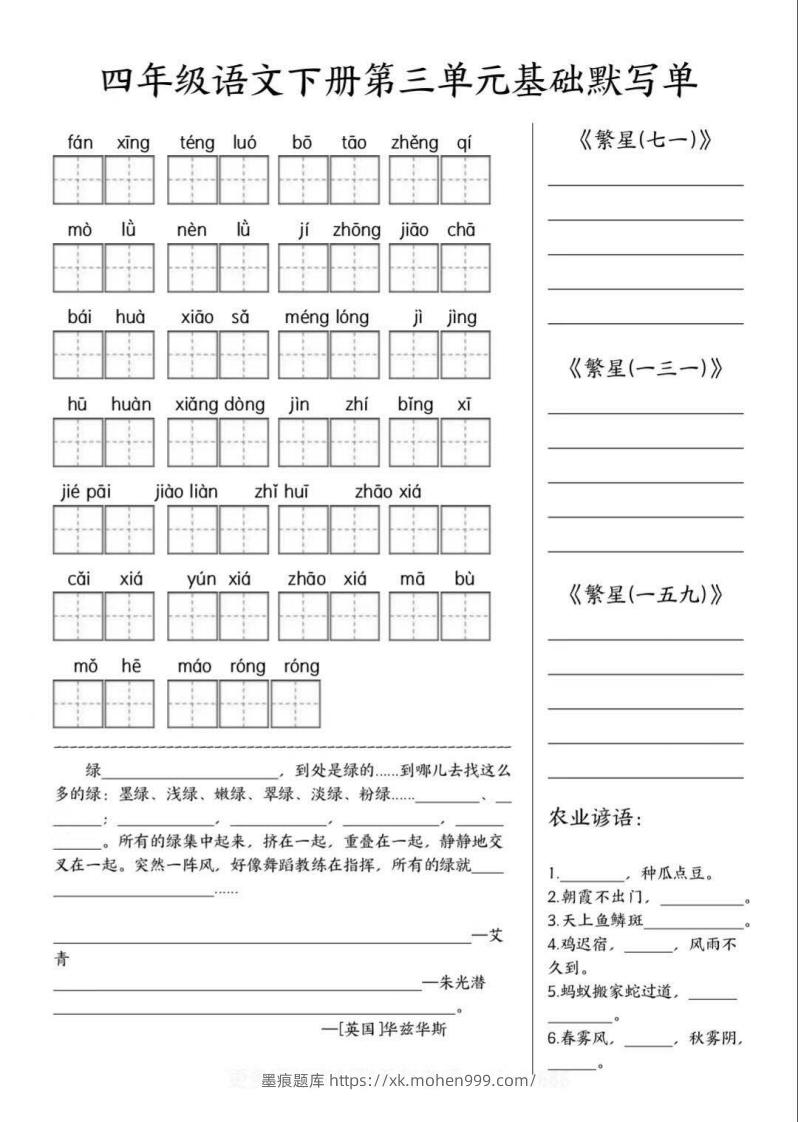 四年级语文下册第三单元基础默写单
fán xīng téng luó bō tāo zhěng qí
mò lǜ nèn lǜ jí zhōng jiāo chā
bái huà xiāo sǎ méng lóng jì jìng
hū huàn xiǎng dòng jìn zhí bǐng xī
jié pāi jiào liàn zhǐ huī zhāo xiá
cǎi xiá yún xiá zhāo xiá mā bù
mǒ hē máo róng róng
绿____________________，到处是绿的……到哪儿去找这么
多的绿：墨绿、浅绿、嫩绿、翠绿、淡绿、粉绿……________、__
______；___________，___________，___________，______
______。所有的绿集中起来，挤在一起，重叠在一起，静静地交
叉在一起。突然一阵风，好像舞蹈教练在指挥，所有的绿就____
____________________……
____________________—艾
青
____________________—朱光潜
____________________。
—[英国]华兹华斯
《繁星(七一)》
《繁星(一三一)》
《繁星(一五九)》
农业谚语：
1.________，种瓜点豆。
2.朝霞不出门，__________。
3.天上鱼鳞斑____________。
4.鸡迟宿，______，风雨不
久到。
5.蚂蚁搬家蛇过道，______
________。
6.春雾风，______，秋雾阴，
______。
墨痕题库 https://xk.mohen999.com/